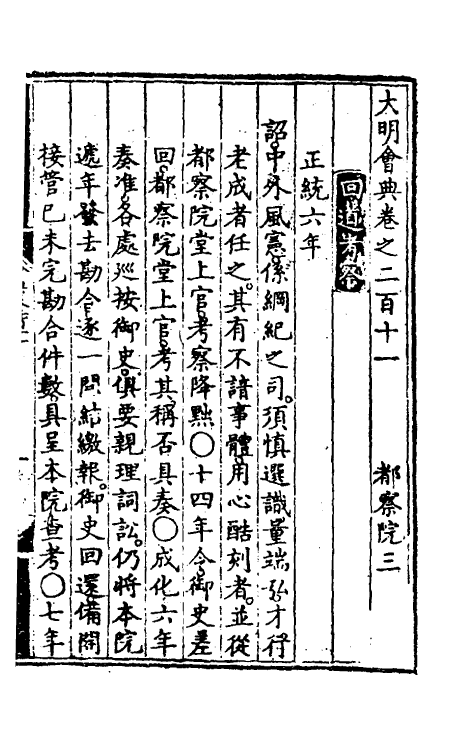 大明會典卷之二百十一　都察院三
回道考察
正統六年
詔中外風憲係綱紀之司須慎選識量端弘才行
老成者任之其有不諳事體用心酷刻者並從
都察院堂上官考察降黜○十四年令御史差
回都察院堂上官考其稱否具奏○成化六年
奏准各處巡按御史俱要親理詞訟仍將本院
遞年發去勘合逐一問結繳報御史回還備開
接管已未完勘合件數具呈本院查考○七年